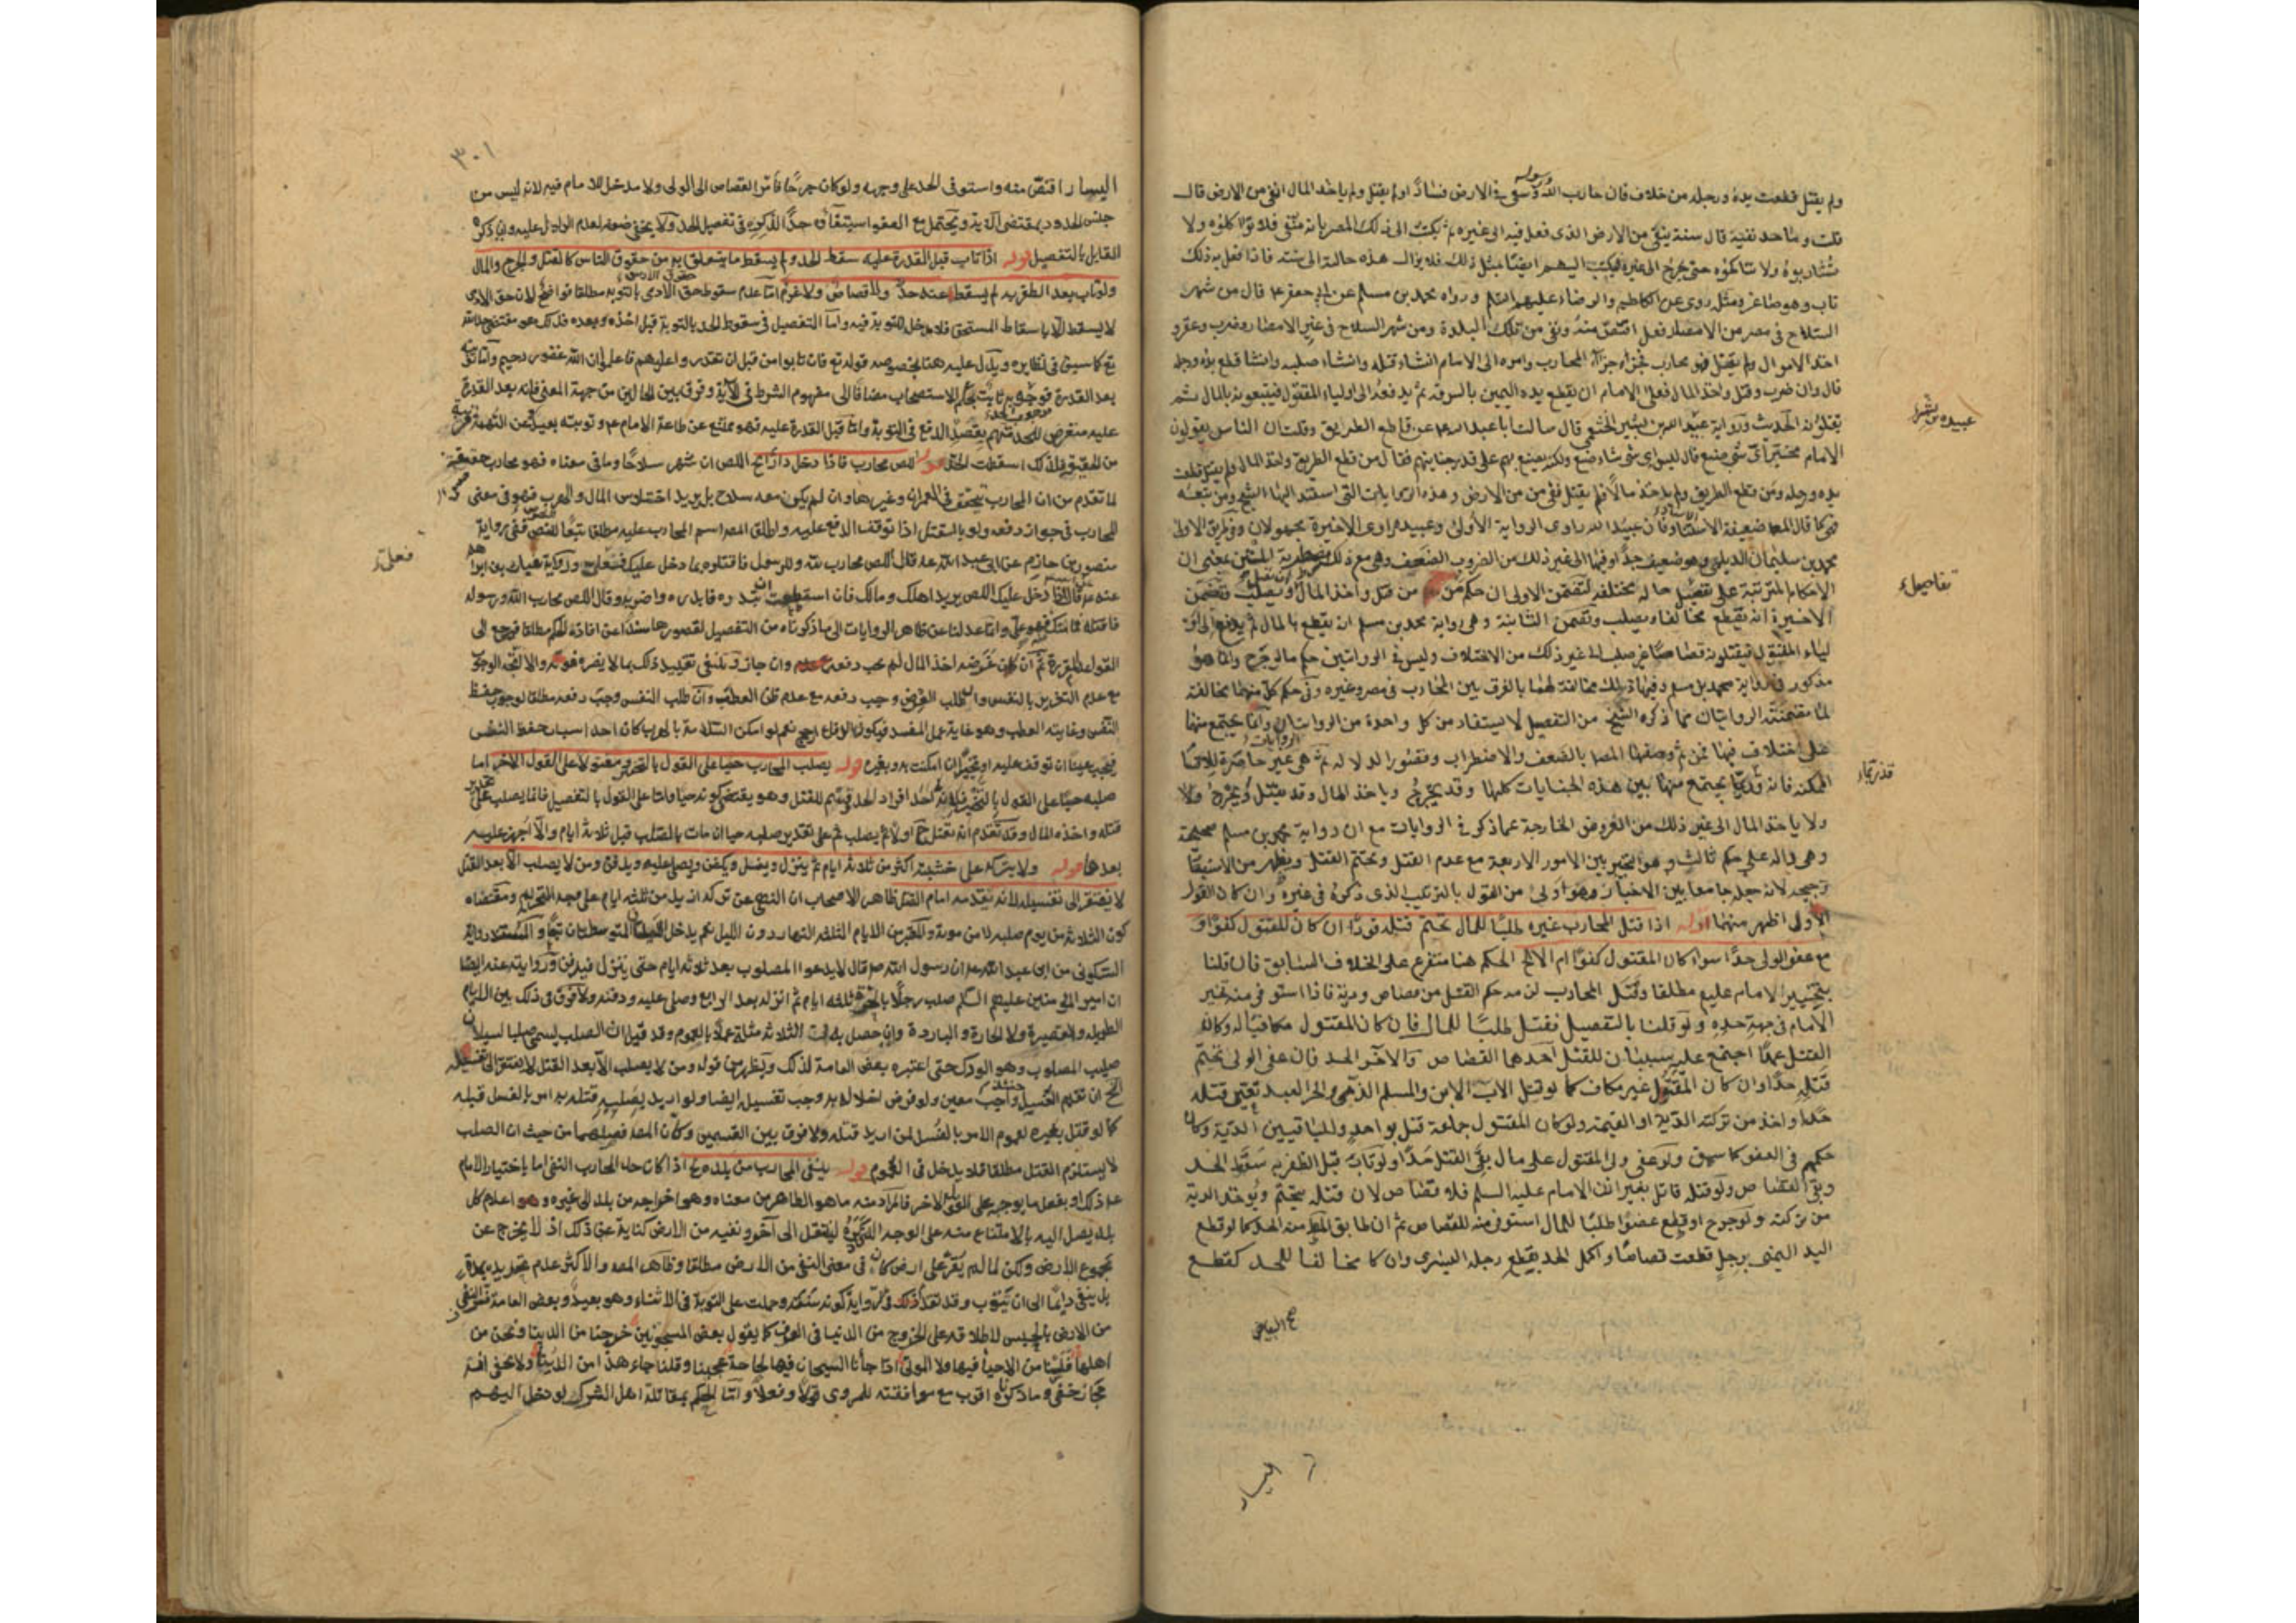 ولم يقتل قطعت يده ورجله من خلاف فان حارب الله ورسوله وسعى في الارض فسادا ولم يقتل ولم ياخذ المال نفى من الارض قال
قلت وما حد نفيه قال سنة ينفى من الارض الذى فعل فيه الى غيره ثم يكتب الى ذلك المصر بانه منفى فلا تواكلوه ولا
تشاربوه ولا تناكحوه حتى يخرج الى غيره فيكتب اليهم ايضا بمثل ذلك فلا يزال هذه حاله الى سنة فاذا فعل به ذلك
تاب وهو صاغر ومثله روى عن الكاظم والرضا عليهما السلم ورواه محمد بن مسلم عن ابي جعفر ع قال من شهر
السلاح في مصر من الامصار فعقر اقتص منه ونفى من تلك البلدة ومن شهر السلاح في غير الامصار وضرب وعقر و
اخذ الاموال ولم يقتل فهو محارب فجزاؤه جزاء المحارب وامره الى الامام ان شاء قتله وان شاء صلبه وان شاء قطع يده ورجله
قال وان ضرب وقتل واخذ المال فعلى الامام ان يقطع يده اليمين بالسرقة ثم يدفعه الى اولياء المقتول فيتبعونه بالمال ثم
يقتلونه الحديث ورواية عبيد الله بن بشير الخثعمى قال سالت ابا عبد الله ع عن قاطع الطريق وقلت ان الناس يقولون
الامام مخير اى شى صنع قال ليس اى شى شاء صنع ولكنه يصنع بهم على قدر جنايتهم فقال من قطع الطريق واخذ المال ولم يقتل قطعت
يده ورجله ومن قطع الطريق ولم ياخذ مالا ولم يقتل نفى من الارض وهذه الروايات التى استند اليها الشيخ ومن تبعه
فهى كما قال المص ضعيفة الاسناد فان عبيد الله راوى الرواية الاولى وعبيدة راوى الاخيرة مجهولان وفى طريق الاولى
محمد بن سليمان الديلمى وهو ضعيف جدا وفيها الى غير ذلك من الضروب الضعف وهى مع ذلك مضطربة المتن بمعنى ان
الاحكام المترتبة على تفصيل حاله مختلفة لتضمن الاولى ان حكم من قتل واخذ المال ان يقتل ويصلب وتضمن
الاخيرة انه يقطع مخالفا ويصلب وتضمن الثانية وهى رواية محمد بن مسلم ان يقطع بالمال ثم يدفع الى او
لياء المقتول فيقتلونه قصاصا غير صلب الى غير ذلك من الاختلاف وليس فى الروايتين حكم ما لو جرح وانما هو
مذكور فى رواية محمد بن مسلم وفيها مع ذلك مخالفة لهما بالفرق بين المحارب فى مصر وغيره وفى حكم كل منهما مخالفة
لما تضمنته الروايتان مما ذكره الشيخ من التفصيل لا يستفاد من كل واحدة من الروايتان وانما يجتمع منها
على اختلاف فيها فمن ثم وصفها المص بالضعف والاضطراب وقصور الدلالة ثم هى غير حاصرة للاقسام
الممكنة فانه قد يجتمع منها بين هذه الجنايات كلها وقد يجرح وياخذ المال وقد يقتل ويجرح ولا
ولا ياخذ المال الى غير ذلك من الفروض الخارجة عما ذكر فى الروايات مع ان رواية محمد بن مسلم صحيحة
وهى دالة على حكم ثالث وهو التخيير بين الامور الاربعة مع عدم القتل وتحتم القتل ويظهر من الاستبصار
ترجيحه لانه جعله جامعا بين الاخبار وهو اولى من القول بالترتيب الذى ذكره فى غيره وان كان القول
الاولى اظهر منهما قوله اذا قتل المحارب غيره طلبا للمال تحتم قتله قودا ان كان المقتول كفوا و
مع عفو الولى حدا سواء كان المقتول كفوا ام لا الخ الحكم هنا متفرع على الخلاف السابق فان قلنا
بتخيير الامام عليه مطلقا وقتل المحارب لزمه حكم القتل من قصاص ودية فاذا استوفى منه تخير
الامام فى جهة حده ولو قلنا بالتفصيل فقتل طلبا للمال فان كان المقتول مكافيا له وكان
القتل عمدا اجتمع عليه سببان للقتل احدهما القصاص والاخر الحد فان عفى الولى تحتم
قتله حدا وان كان المقتول غير مكاف كما لو قتل الاب الابن والمسلم الذمى والحر العبد تعين قتله
حدا واخذ من تركته الدية او القيمة ولو كان المقتول جماعة قتل بواحد وللباقيين الدية وكان
حكمهم فى العفو كما سبق ولو عفى ولى المقتول على مال بقى القتل حدا ولو تاب قبل الظفر به سقط الحد
وبقى القصاص ولو قتله قاتل بغير اذن الامام عليه السلم فلا قصاص لان قتله متحتم ويوخذ الدية
من تركته ولو جرح او قطع عضوا طلبا للمال استوفى منه القصاص ثم ان طابق القطع من الحد كما لو قطع
اليد اليمنى برجل قطعت قصاصا واكمل الحد بقطع رجله اليسرى وان كا مخالفا للحد كقطع
عبيدة بن بشير
تفاصيلها
اليسار
٣٠١
اليسار اقتص منه واستوفى الحد على وجهه ولو كان جرحا فامر القصاص الى الولى ولا مدخل للامام فيه لانه ليس من
جنس الحدود بمقتضى الاية ويحتمل مع العفو استيفاؤه حدا لذكره فى تفصيل الحد ولا يخفى ضعفه لعدم الدليل عليه وان ذكره
القايل بالتفصيل قوله اذا تاب قبل القدرة عليه سقط الحد ولم يسقط ما يتعلق به من حقوق الناس كالقتل والجرح والمال
ولو تاب بعد الظفر به لم يسقط عنه حد ولا قصاص ولا غرم اما عدم سقوط حق الادمى بالتوبة مطلقا فواضح لان حق الادمى
لا يسقط الا باسقاط المستحق فلا مدخل للتوبة فيه واما التفصيل فى سقوط الحد بالتوبة قبل اخذه وبعده فذلك هو مقتضى حد الله
تع كما سبق فى نظايره ويدل عليه هنا بخصوصه قوله تع فان تابوا من قبل ان تقدروا عليهم فاعلموا ان الله غفور رحيم واما توبته
بعد القدرة فوجوبه ثابت بحكم الاستصحاب مضافا الى مفهوم الشرط فى الاية وفرق بين الحالين من جهة المعنى فانه بعد القدرة
عليه متعرض للحد متهم بقصد الدفع فى التوبة واما قبل القدرة عليه فهو ممتنع عن طاعة الامام ع وتوبته بعيدة عن التهمة قريبة
من الحقيقة فلذلك اسقطت الحد قوله اللص محارب فاذا دخل دارا الخ اللص ان شهر سلاحا وما فى معناه فهو محارب حقيقة
لما تقدم من ان المحارب يتحقق فى العمران وغيرها وان لم يكن معه سلاح بل يريد اختلاس المال والهرب فهو فى معنى
المحارب فى جواز دفعه ولو بالقتل اذا توقف الدفع عليه واطلق المص اسم المحارب عليه مطلقا تبعا للنص ففى رواية
منصور بن حازم عن ابى عبد الله ع قال اللص محارب لله ولرسوله فاقتلوه فما دخل عليك فعلى ورواية غياث بن ابراهيم
عنه ع قال اذا دخل عليك اللص يريد اهلك ومالك فان استطعت ان تبدره فابدره واضربه وقال اللص محارب الله ورسوله
فاقتله فما مسك فهو على وانما عدلنا عن ظاهر الروايات الى ما ذكرناه من التفصيل لقصورها سندا عن افادة الحكم مطلقا فيرجع الى
القواعد المقررة ثم ان كان غرضه اخذ المال لم يجب دفعه وان جاز وينبغى تقييد ذلك بما لا يضره فوته والا اتجه الوجوب
مع عدم التغرير بالنفس وان طلب العرض وجب دفعه مع عدم ظن العطب وان طلب النفس وجب دفعه مطلقا لوجوب حفظ
النفس وغايته العطب وهو غاية عمل المفسد فيكون الدفاع ارجح نعم لو امكن السلامة بالهرب كان احد اسباب حفظ النفس
فيجب عينا ان توقف عليه او تخييرا ان امكنت به وبغيره قوله يصلب المحارب حيا على القول بالتخيير ومقتولا على القول الاخر اما
صلبه حيا على القول بالتخيير فلانه احد افراد الحد قسيم للقتل وهو يقتضى كونه حيا واما على القول بالتفصيل فانما يصلب على تقدير
قتله واخذه المال وقد تقدم انه يقتل اولا ثم يصلب ثم على تقدير صلبه حيا ان مات بالصلب قبل ثلاثة ايام والا اجهز عليه
بعدها قوله ولا يترك على خشبته اكثر من ثلاثة ايام ثم ينزل ويغسل ويكفن ويصلى عليه ويدفن ومن لا يصلب الا بعد القتل
لا يفتقر الى تغسيله لانه يقدمه امام القتل ظاهر الاصحاب ان النهى عن تركه ازيد من ثلثة ايام على وجه التحريم ومقتضاه
كون الثلاثة من يوم صلبه لا من موته والمعتبر من الايام الثلثة النهار دون الليل نعم يدخل الليلتان المتوسطتان تبعا والمستند رواية
السكونى عن ابى عبد الله ع ان رسول الله ص قال لا يدعوا المصلوب بعد ثلاثة ايام حتى ينزل فيدفن وروايته عنه ايضا
ان امير المؤمنين عليهم السلم صلب رجلا بالحيرة ثلثة ايام ثم انزله بعد الرابع وصلى عليه ودفنه ولا فرق فى ذلك بين الايام
الطويلة والقصيرة ولا الحارة والباردة وان حصل به فى الثلاثة مثلة عملا بالعموم وقد قيل ان الصلب ليسمى صلبا لسيلان
صليب المصلوب وهو الودك حتى اعتبره بعض العامة لذلك ويظهر من قوله ومن لا يصلب الا بعد القتل لا يفتقر الى تغسيله
الخ ان تقدم الغسل واجب معين ولو فرض اخلاله به وجب تغسيله ايضا ولو اريد بصلبه قتله به امر بالغسل قبله
كما لو قتل بغيره لعموم الامر بالغسل لمن اريد قتله ولا فرق بين القسمين وكان المص فصلهما من حيث ان الصلب
لا يستلزم القتل مطلقا فلا يدخل فى العموم قوله ينفى المحارب من بلده الخ اذا كان حد المحارب النفى اما باختيار الامام
ع لذلك او بفعل ما يوجبه على القول الاخر فالمراد منه ما هو الظاهر من معناه وهو اخراجه من بلد الى غيره وهو اعلام كل
بلد يصل اليه بالامتناع منه على الوجه المقرر لينتقل الى اخر ونفيه من الارض كناية عن ذلك اذ لا يخرج عن
مجموع الارض ولكن لما لم يقر على ارض كان فى معنى النفى من الارض مطلقا وظاهر المص والاكثر عدم تحديده بمدة
بل ينفى دايما الى ان يتوب وقد تقدم فى الرواية كونه سنة وحملت على التوبة فى الاثناء وهو بعيد وبعض العامة فسر النفى
من الارض بالحبس لاطلاقه على الخروج من الدنيا فى العرف كما يقول بعض المسجونين خرجنا من الدنيا ونحن من
اهلها فلسنا من الاحياء فيها ولا الموتى اذا جائنا السجان فيها لحاجة عجبنا وقلنا جاء هذا من الدنيا ولا يخفى انه
مجاز خفى وما ذكرناه اقرب مع موافقته للمروى قولا وفعلا واما الحكم بمقاتلة اهل الشرك لو دخل اليهم